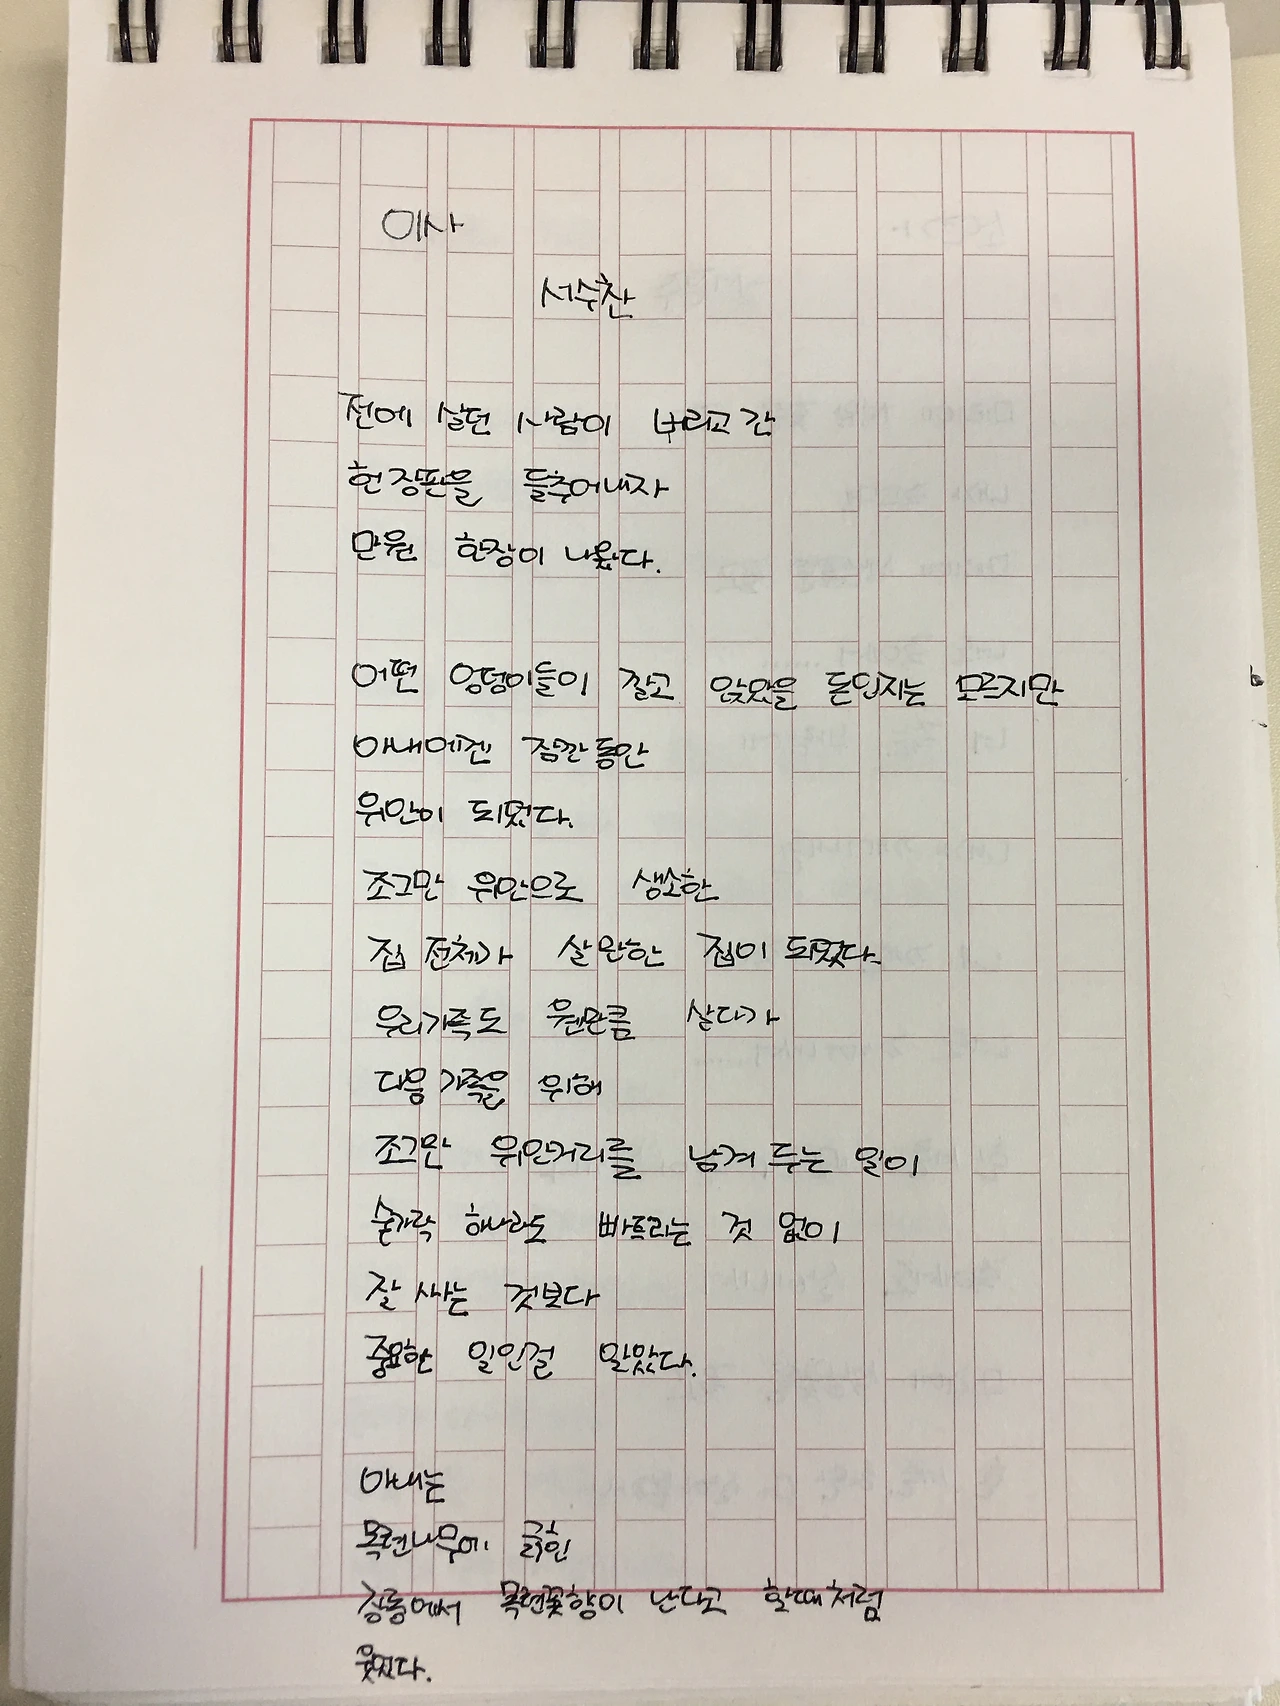 이사
서수찬
전에 살던 사람이 버리고 간
헌 장판을 들추어내자
만원 한장이 나왔다.
어떤 엉덩이들이 깔고 앉았을 돈인지는 모르지만
아내에겐 잠깐 동안
위안이 되었다.
조그만 위안으로 생소한
집 전체가 살 만한 집이 되었다.
우리가족도 웬만큼 살다가
다음 가족을 위해
조그만 위안거리를 남겨 두는 일이
숟가락 하나라도 빠트리는 것 없이
잘 싸는 것보다
중요한 일인걸 알았다.
아내는
목련나무에 긁힌
장롱에서 목련꽃향이 난다고 할때처럼
웃었다.